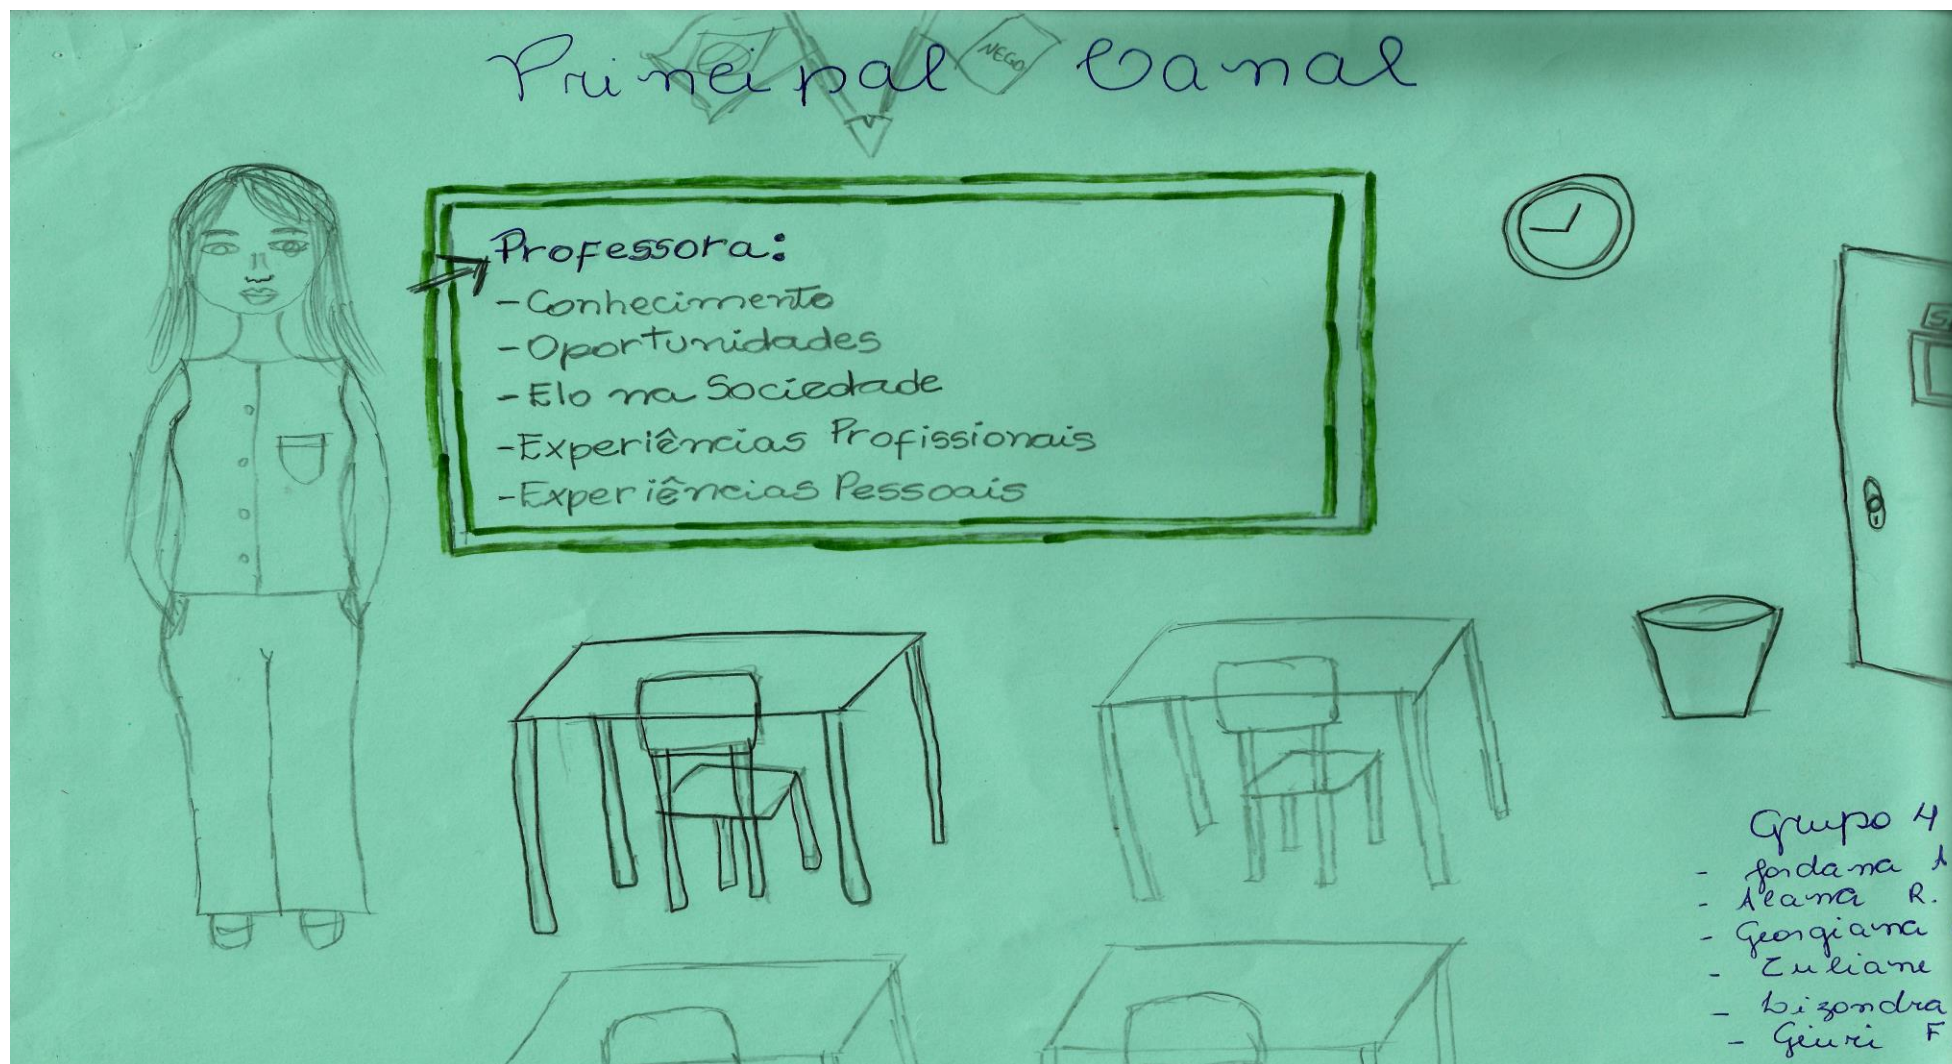 NEGO
Principal Canal
Professora:
- Conhecimento
- Oportunidades
- Elo na Sociedade
- Experiências Profissionais
- Experiências Pessoais
Grupo 4
- Jordana
- Alana R.
- Georgiana
- Luliane
- Lizondra
- Geuri F